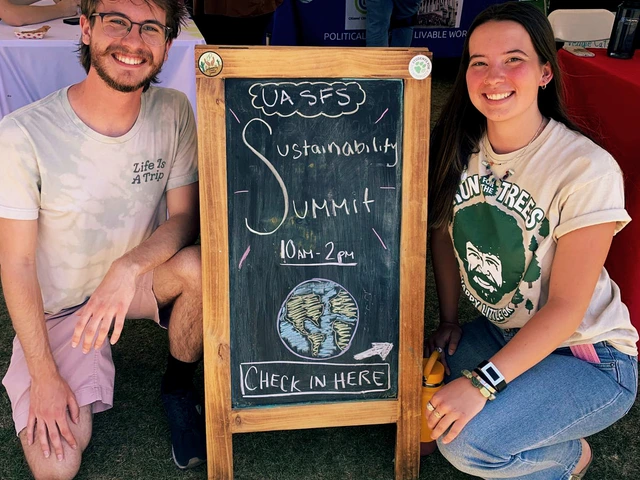 POLITICAL
LIVABLE WOR
UA SFS
Sustainability
Summit
10AM-2PM
CHECK IN HERE
Life Is
A Trip
RUN FOR THE TREES
HAPPY LITTLE